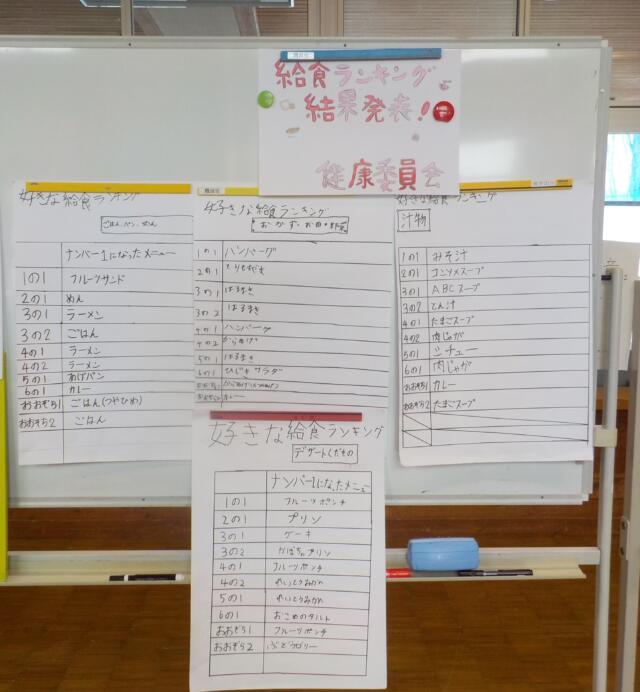 給食ランキング
結果発表!
健康委員会
好きな給食ランキング
ごはん、パン、めん
ナンバー1になったメニュー
1の1 フルーツサンド
2の1 めん
3の1 ラーメン
3の2 ごはん
4の1 ラーメン
4の2 ラーメン
5の1 あげパン
6の1 カレー
おおぞら1 ごはん(つやひめ)
おおぞら2 ごはん
好きな給食ランキング
おかず・お肉・野菜
1の1 ハンバーグ
2の1
3の1 はるまき
3の2 はるまき
4の1 ハンバーグ
4の2 からあげ
5の1 はるまき
6の1 ひじきサラダ
カレー
好きな給食ランキング
汁物
1の1 みそ汁
2の1 コンソメスープ
3の1 ABCスープ
3の2 とん汁
4の1 たまごスープ
4の2 肉じゃが
5の1 シチュー
6の1 肉じゃが
おおぞら1 カレー
おおぞら2 たまごスープ
好きな給食ランキング
デザートくだもの
ナンバー1になったメニュー
1の1 フルーツポンチ
2の1 プリン
3の1 ケーキ
3の2 かぼちゃプリン
4の1 フルーツポンチ
4の2 れいとうみかん
5の1 れいとうみかん
6の1 おこめのタルト
おおぞら1 フルーツポンチ
おおぞら2 ぶどうゼリー